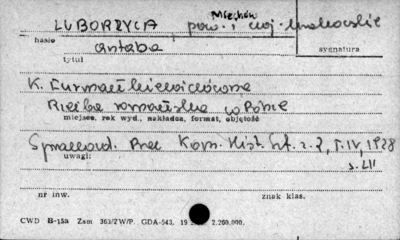 Miechów
LUBORZYCA, pow. i woj. krakowskie
hasło
sygnatura
antaba
tytuł
K. Furmankiewiczówna
Rzeźba romańska w Polsce
miejsce, rok wyd., nakładca, format, objętość
Sprawozd. Prac Kom. Hist. Szt. z. 2, T. IV, 1928
uwagi:
s. LII
nr inw.
znak klas.
CWD B-15a Zam 363/ZW/P. GDA-543. 2.200.000.